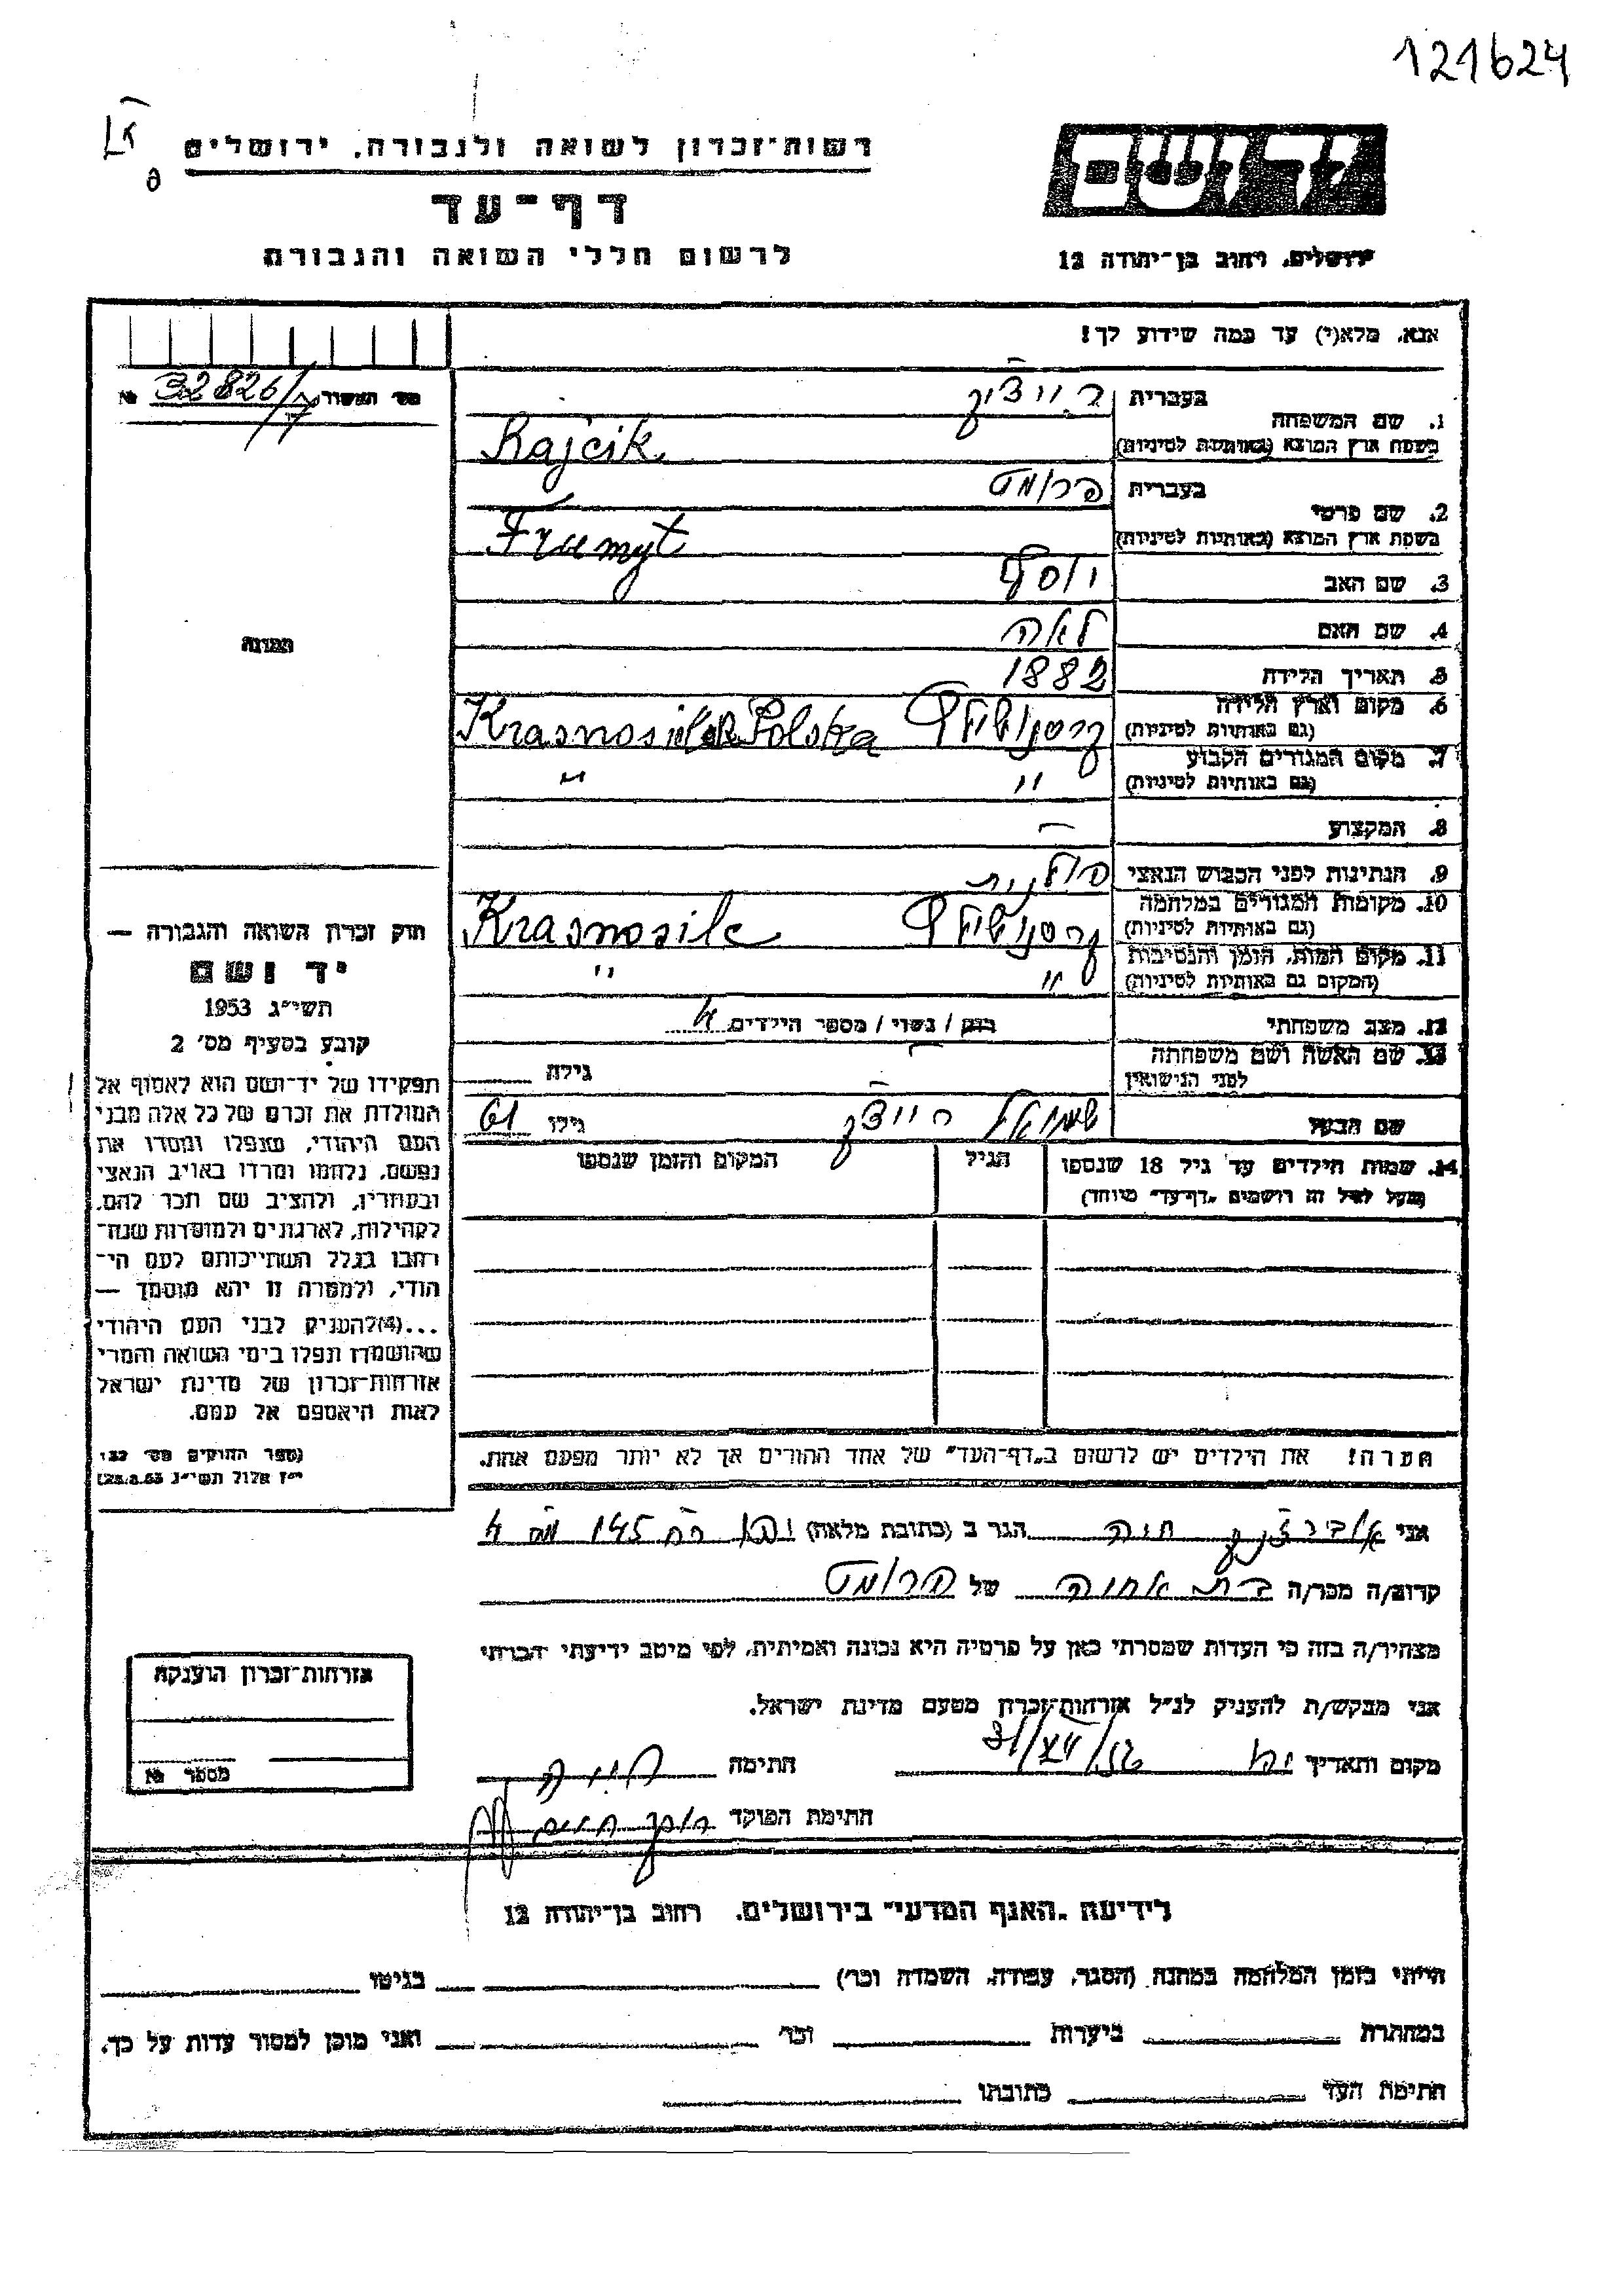 121624
רשות־זכרון לשואה ולגבורה, ירושלים
דף־עד
לרשום חללי השואה והגבורה
יד ושם
ירושלים, רחוב בן־יהודה 12
אנא, מלא(י) עד כמה שידוע לך!
מס׳ האשור 32826/7 №
1. שם המשפחה
בעברית רייציק
בשפת ארץ המוצא (באותיות לטיניות) Rajcik
2. שם פרטי
בעברית פרומט
בשפת ארץ המוצא (באותיות לטיניות) Frumyt
3. שם האב יוסף
4. שם האם לאה
5. תאריך הלידה 1882
6. מקום וארץ הלידה
(גם באותיות לטיניות) קרסנושילץ Krasnosielc Polska
7. מקום המגורים הקבוע
(גם באותיות לטיניות) " "
8. המקצוע —
9. הנתינות לפני הכבוש הנאצי פולנית
10. מקומות המגורים במלחמה
(גם באותיות לטיניות) קרסנושילץ Krasnosilc
11. מקום המות, הזמן והנסיבות
(המקום גם באותיות לטיניות) " "
12. מצב משפחתי רווק / נשוי / מספר הילדים 4
13. שם האשה ושם משפחתה
לפני הנישואין — גילה
שם הבעל שמואל רייציק גילו 61
14. שמות הילדים עד גיל 18 שנספו
(מעל לגיל זה רושמים "דף־עד" מיוחד)
הגיל
המקום והזמן שנספו
הערה! את הילדים יש לרשום ב"דף־העד" של אחד ההורים אך לא יותר מפעם אחת.
התמונה
חוק זכרון השואה והגבורה —
יד ושם
תשי"ג 1953
קובע בסעיף מס׳ 2
תפקידו של יד־ושם הוא לאסוף אל
המולדת את זכרם של כל אלה מבני
העם היהודי, שנפלו ומסרו את
נפשם, נלחמו ומרדו באויב הנאצי
ובעוזריו, ולהציב שם וזכר להם,
לקהילות, לארגונים ולמוסדות שנח־
רבו בגלל השתייכותם לעם הי־
הודי, ולמטרה זו יהא מוסמך —
...(4) להעניק לבני העם היהודי
שהושמדו ונפלו בימי השואה והמרי
אזרחות־זכרון של מדינת ישראל
לאות היאספם אל עמם.
(ספר החוקים מס׳ 132,
י"ז אלול תשי"ג 28.8.53)
אני חוה הגר ב (כתובת מלאה) יפו 145 4
קרוב/ה מכר/ה בת אחות של פרומט
מצהיר/ה בזה כי העדות שמסרתי כאן על פרטיה היא נכונה ואמיתית, לפי מיטב ידיעתי והכרתי
אני מבקש/ת להעניק לנ"ל אזרחות־זכרון מטעם מדינת ישראל.
מקום ותאריך יפו 31/XII/ חתימה
חתימת הפוקד
אזרחות־זכרון הוענקה
מספר №
לידיעת "האגף המדעי" בירושלים, רחוב בן־יהודה 12
הייתי בזמן המלחמה במחנה (הסגר, עבודה, השמדה וכו׳) בגיטו
במחתרת ביערות וכו׳ ואני מוכן למסור עדות על כך.
חתימת העד כתובתו